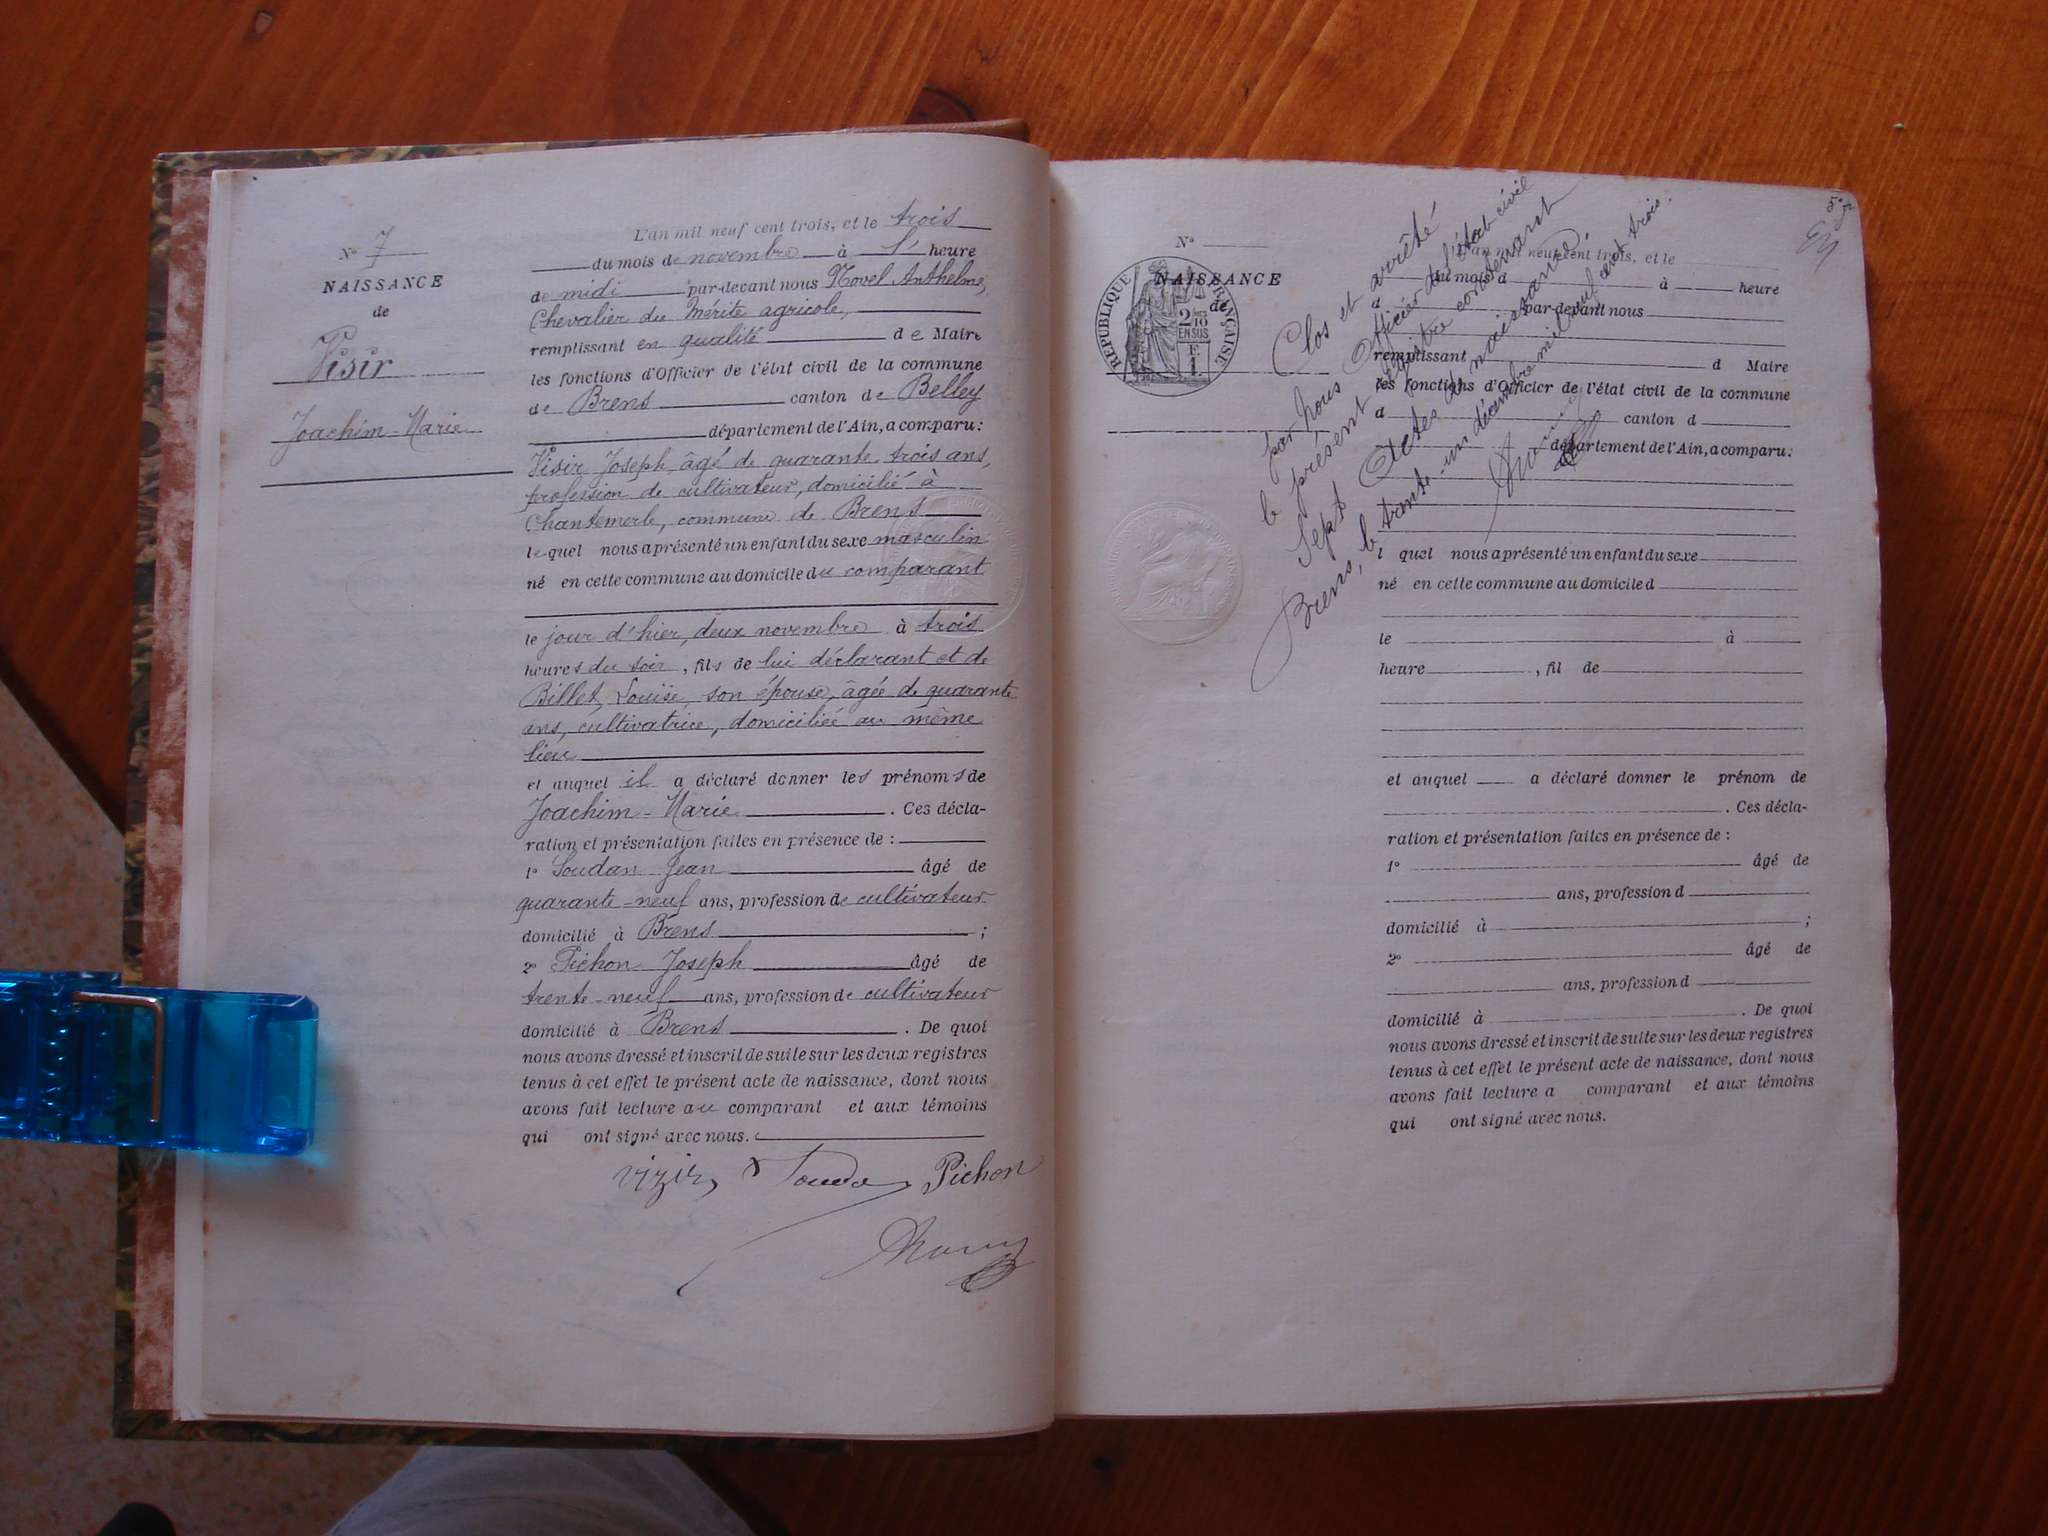 N° 7
NAISSANCE
de
Visir
Joachim-Marie
L'an mil neuf cent trois, et le trois
du mois de novembre à 1' heure
de midi par-devant nous Novel Anthelme,
Chevalier du Mérite agricole,
remplissant en qualité de Maire
les fonctions d'Officier de l'état civil de la commune
de Brens canton de Belley
département de l'Ain, a comparu:
Visir Joseph, âgé de quarante-trois ans,
profession de cultivateur, domicilié à
Chantemerle, commune de Brens
lequel nous a présenté un enfant du sexe masculin
né en cette commune au domicile du comparant
le jour d'hier, deux novembre à trois
heures du soir, fils de lui déclarant et de
Billet, Louise, son épouse, âgée de quarante
ans, cultivatrice, domiciliée au même
lieu
et auquel il a déclaré donner les prénoms de
Joachim-Marie. Ces décla-
ration et présentation faites en présence de :
1° Soudan Jean âgé de
quarante-neuf ans, profession de cultivateur
domicilié à Brens ;
2° Pichon Joseph âgé de
trente-neuf ans, profession de cultivateur
domicilié à Brens. De quoi
nous avons dressé et inscrit de suite sur les deux registres
tenus à cet effet le présent acte de naissance, dont nous
avons fait lecture au comparant et aux témoins
qui ont signé avec nous.
vizir Pichon
N°
NAISSANCE
de
RÉPUBLIQUE FRANÇAISE
2/10
EN SUS
Clos et arrêté
par Nous Officier de l'état civil
le présent registre contenant
Sept Actes de naissance
Brens, le trente-un décembre mil neuf cent trois.
L'an mil neuf cent trois, et le
du mois d à heure
d par-devant nous
remplissant d Maire
les fonctions d'Officier de l'état civil de la commune
d canton d
département de l'Ain, a comparu:
l quel nous a présenté un enfant du sexe
né en cette commune au domicile d
le à
heure , fil de
et auquel a déclaré donner le prénom de
. Ces décla-
ration et présentation faites en présence de :
1° âgé de
ans, profession d
domicilié à ;
2° âgé de
ans, profession d
domicilié à . De quoi
nous avons dressé et inscrit de suite sur les deux registres
tenus à cet effet le présent acte de naissance, dont nous
avons fait lecture a comparant et aux témoins
qui ont signé avec nous.